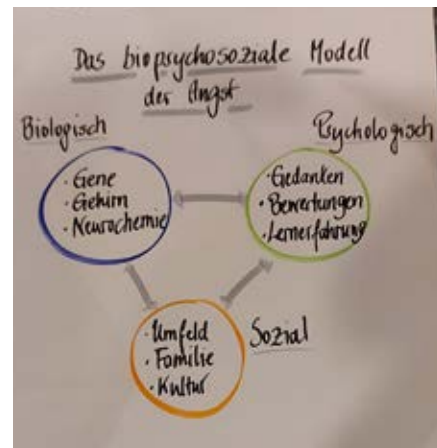 Das biopsychosoziale Modell
der Angst
Biologisch
· Gene
· Gehirn
· Neurochemie
Psychologisch
· Gedanken
· Bewertungen
· Lernerfahrung
Sozial
· Umfeld
· Familie
· Kultur